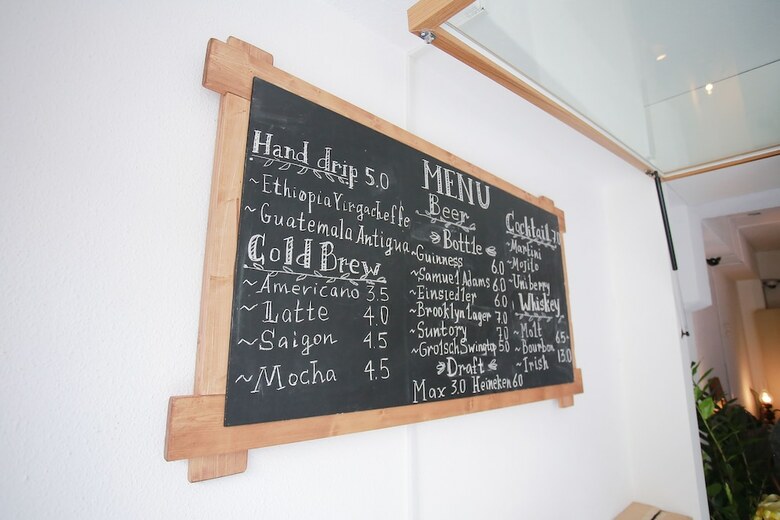 MENU
Hand drip 5.0
~Ethiopia Yirgacheffe
~Guatemala Antigua
Cold Brew
~Americano 3.5
~Latte 4.0
~Saigon 4.5
~Mocha 4.5
Beer
Bottle
~Guinness 6.0
~Samuel Adams 6.0
~Einsiedler 6.0
~Brooklyn Lager 7.0
~Suntory 7.0
~Grolsch Swingtop 5.0
Draft
Max 3.0 Heineken 6.0
Cocktail
~Martini
~Mojito
~Uniberry
Whiskey
~Malt
6.5~
~Bourbon
13.0
~Irish